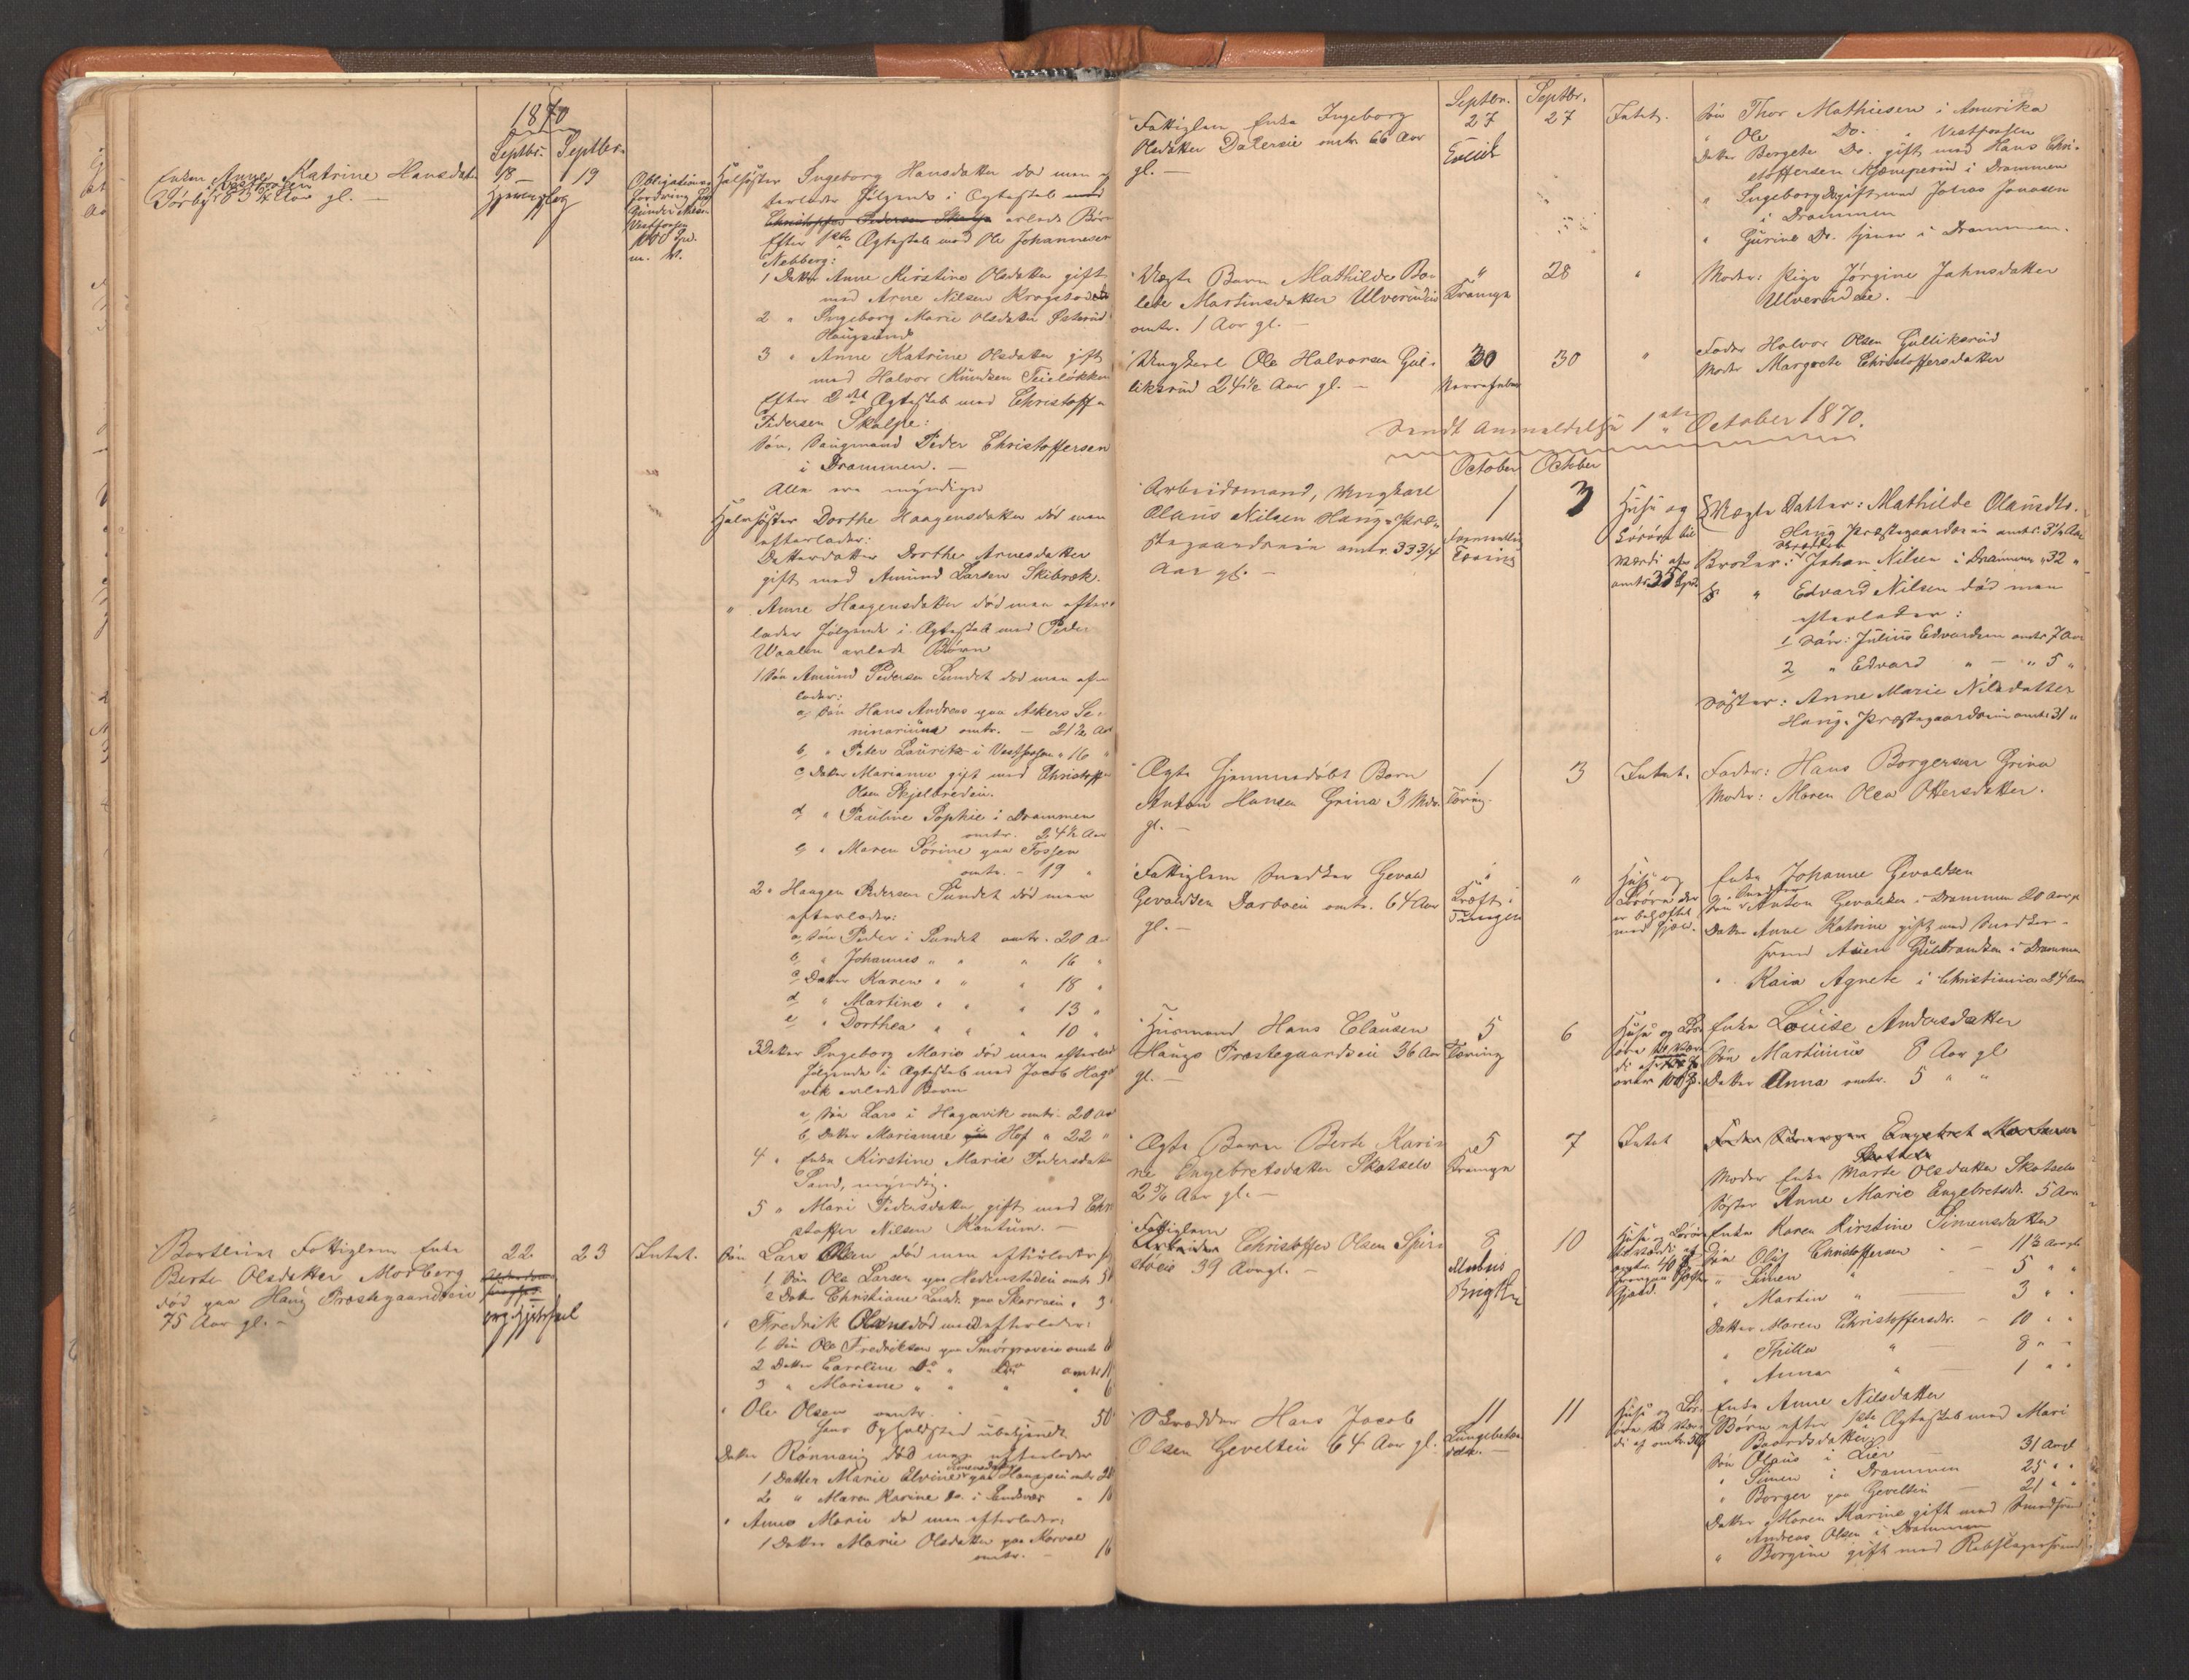 1870
Septbr. Septbr.
Enken Anne Katrine Hansdatter 18 19
Vestfossen
Hjerneslag
Obligations
fordring hos
Vestfossen
Halvsøster Ingeborg Hansdatter død men
efterlader følgende i Ægteskab med
Christopher Pedersen Skalpe avlede Børn
Efter 1ste Ægteskab med Ole Johannesen
Nebberg:
1 Datter Anne Kirstine Olsdatter gift
med Arne Nilsen Krogstad
2 " Ingeborg Marie Olsdatter
Haugsund
3 " Anne Katrine Olsdatter gift
med Halvor Knudsen
Efter 2det Ægteskab med Christoffer
Pedersen Skalpe:
Søn, Peder Christoffersen
i Drammen. —
Alle ere myndige
Halvsøster Dorthe Haagensdatter død men
efterlader:
Datterdatter Dorthe Arnesdatter
gift med Amund Larsen Skibrek.
" Anne Haagensdatter død men efter-
lader følgende i Ægteskab med Peder
Waalen avlede Børn
1 Søn Amund Pedersen Sundet død men efter
lader:
a, Søn Hans Andreas paa Askers Se-
minarium omtr. — 21½ Aar
b, " Peter Lauritz i Vestfossen " 16 "
c Datter Marianne gift med Christoffer
Olsen
d " Pauline Sophie i Drammen
omtr. 24½ Aar
e " Maren Sørine paa Fossen
omtr. — 19 "
2 " Haagen Pedersen Sundet død men
efterlader:
a, Søn Peder i Sundet omtr. 20 Aar
b, " Johannes " " " 16 "
c Datter Karen " " " 18 "
d " Martine " " " 13 "
e, " Dorthea " " " 10 "
3 Datter Ingeborg Marie død men efterlader
følgende i Ægteskab med Jacob Haga
vik avlede Børn
a, Søn Lars i Hagavik omtr. 20 Aar
b, Datter Marianne i Hof " 22 "
4 " Enke Kirstine Marie Pedersdatter
Sand, myndig.
5 " Mari Pedersdatter gift med Chri
stoffer Nilsen Kantum. —
Fattiglem Enke 22 23 Intet.
Berte Olsdatter Morberg
død paa Haug Præstegaardseie
75 Aar gl. —
Søn Lars Olsen død men efterlader
1, Søn Ole Larsen paa Hedenstadeie omtr.
2 Datter Christiane
" Fredrik Olsen død men efterlader:
1, Søn Ole Fredriksen paa Smørgraveie omtr
2 Datter Caroline Do " omtr
3 " Mariane " " "
" Ole Olsen omtr. — 50
hans Opholdssted ubekjendt
Datter Rønnaug død men efterlader
1 Datter Marie Elvine
2 " Maren Karine Do. i
" Anne Marie død men efterlader:
1 Datter Marie Olsdatter paa
omtr. — 16
Septbr. Septbr.
Fattiglem Enke Ingeborg 27 27 Intet.
Olsdatter Dalereie omtr. 66 Aar
gl. —
Søn Thor Mathiesen i Amerika
" Ole Do. " Vestfossen
Datter Bergete Do. gift med Hans Chri-
stoffersen Kjæmperud i Drammen
" Ingeborg Do gift med Johas Jonasen
i Drammen
" Gurine Do. tjener i Drammen.
Uægte Barn Mathilde Bo- " 28 "
lete Martinsdatter Ulverudeie Krampe
omtr. 1 Aar gl. —
Moder: Pige Jørgine Jahnsdatter
Ulverudeie.
Ungkarl Ole Halvorsen Gul- 30 30 "
liksrud 24½ Aar gl. — Nervefeber
Fader Halvor Olsen Gulliksrud
Moder Margrete Christoffersdatter
Sendt Anmeldelse 1ste October 1870.
October October
Arbeidsmand, Ungkarl 1 3
Olaus Nilsen Haug Præ-
stegaardseie omtr. 33 3/4 Tæring
Aar gl. —
Huse og
Løsøre til
Værdi af
omtr. 35 Spd
Uægte Datter: Mathilde Olausdtr.
Haug Præstegaardseie omtr. 3½ Aar
Broder: Johan Nilsen i Drammen " 32 "
" Edvard Nilsen død men
efterlader:
1 Søn: Julius Edvardsen omtr. 7 Aar
2 " Edvard " — " 5 "
Søster: Anne Marie Nilsdatter
Haug Præstegaardseie omtr. 31 "
Ægte hjemmedøbt Barn 1 3 Intet.
Anton Hansen Grina 3 Mdr. Tæring.
gl. —
Fader: Hans Borgersen Grina
Moder: Maren Olea Ottersdatter.
Fattiglem Snedker Gevald " "
Gevaldsen Darboeie omtr. 64 Aar
gl. —
Kræft i
Tungen
Huse og
Løsøre der
er behæftet
med Gjæld.
Enke Johanne Gevaldsen
Snedker
Søn Anton Gevaldsen i Drammen 20 Aar gl
Datter Anne Katrine gift med Snedker-
svend Auen Guldbrandsen i Drammen
" Kaia Agnete i Christiania 24 Aar
Husmand Hans Clausen 5 6
Haugs Præstegaardseie 36 Aar Tæring
gl. —
Enke Louise Andersdatter
Søn Martinius 8 Aar gl
Datter Anna omtr. 5 " "
Ægte Barn Berte Kari- 5 7 Intet
ne Engebretsdatter Skotselv Krampe
2 5/6 Aar gl. —
Moder Enke Marte Olsdatter Skotselv
Søster Anne Marie Engebretsdr. 5 Aar
Fattiglem
Arbeider Christoffer Olsen 8 10
39 Aar gl. — Morbus
Brigthi
Enke Karen Kirstine Simensdatter
Søn Oluf Christoffersen — 11½ Aar gl
" Simen " — 5 " "
" Martin " — 3 " "
Datter Maren Christoffersdr. — 10 " "
" Thilla " — 8 " "
" Anna " — 1 " "
Skrædder Hans Jacob 11 11
Olsen Gevelteie 64 Aar gl. Lungebetæn
delse. —
Enke Anne Nilsdatter
Børn efter 1ste Ægteskab med Mari
Baardsdatter:
Søn Olaus i Lier — 31 Aar gl
" Simen i Drammen — 25 " "
" Borger paa Gevelteie — 21 " "
Datter Maren Karine gift med Smedsvend
Andreas Olsen i Drammen
" Borgine gift med Rebslagersvend